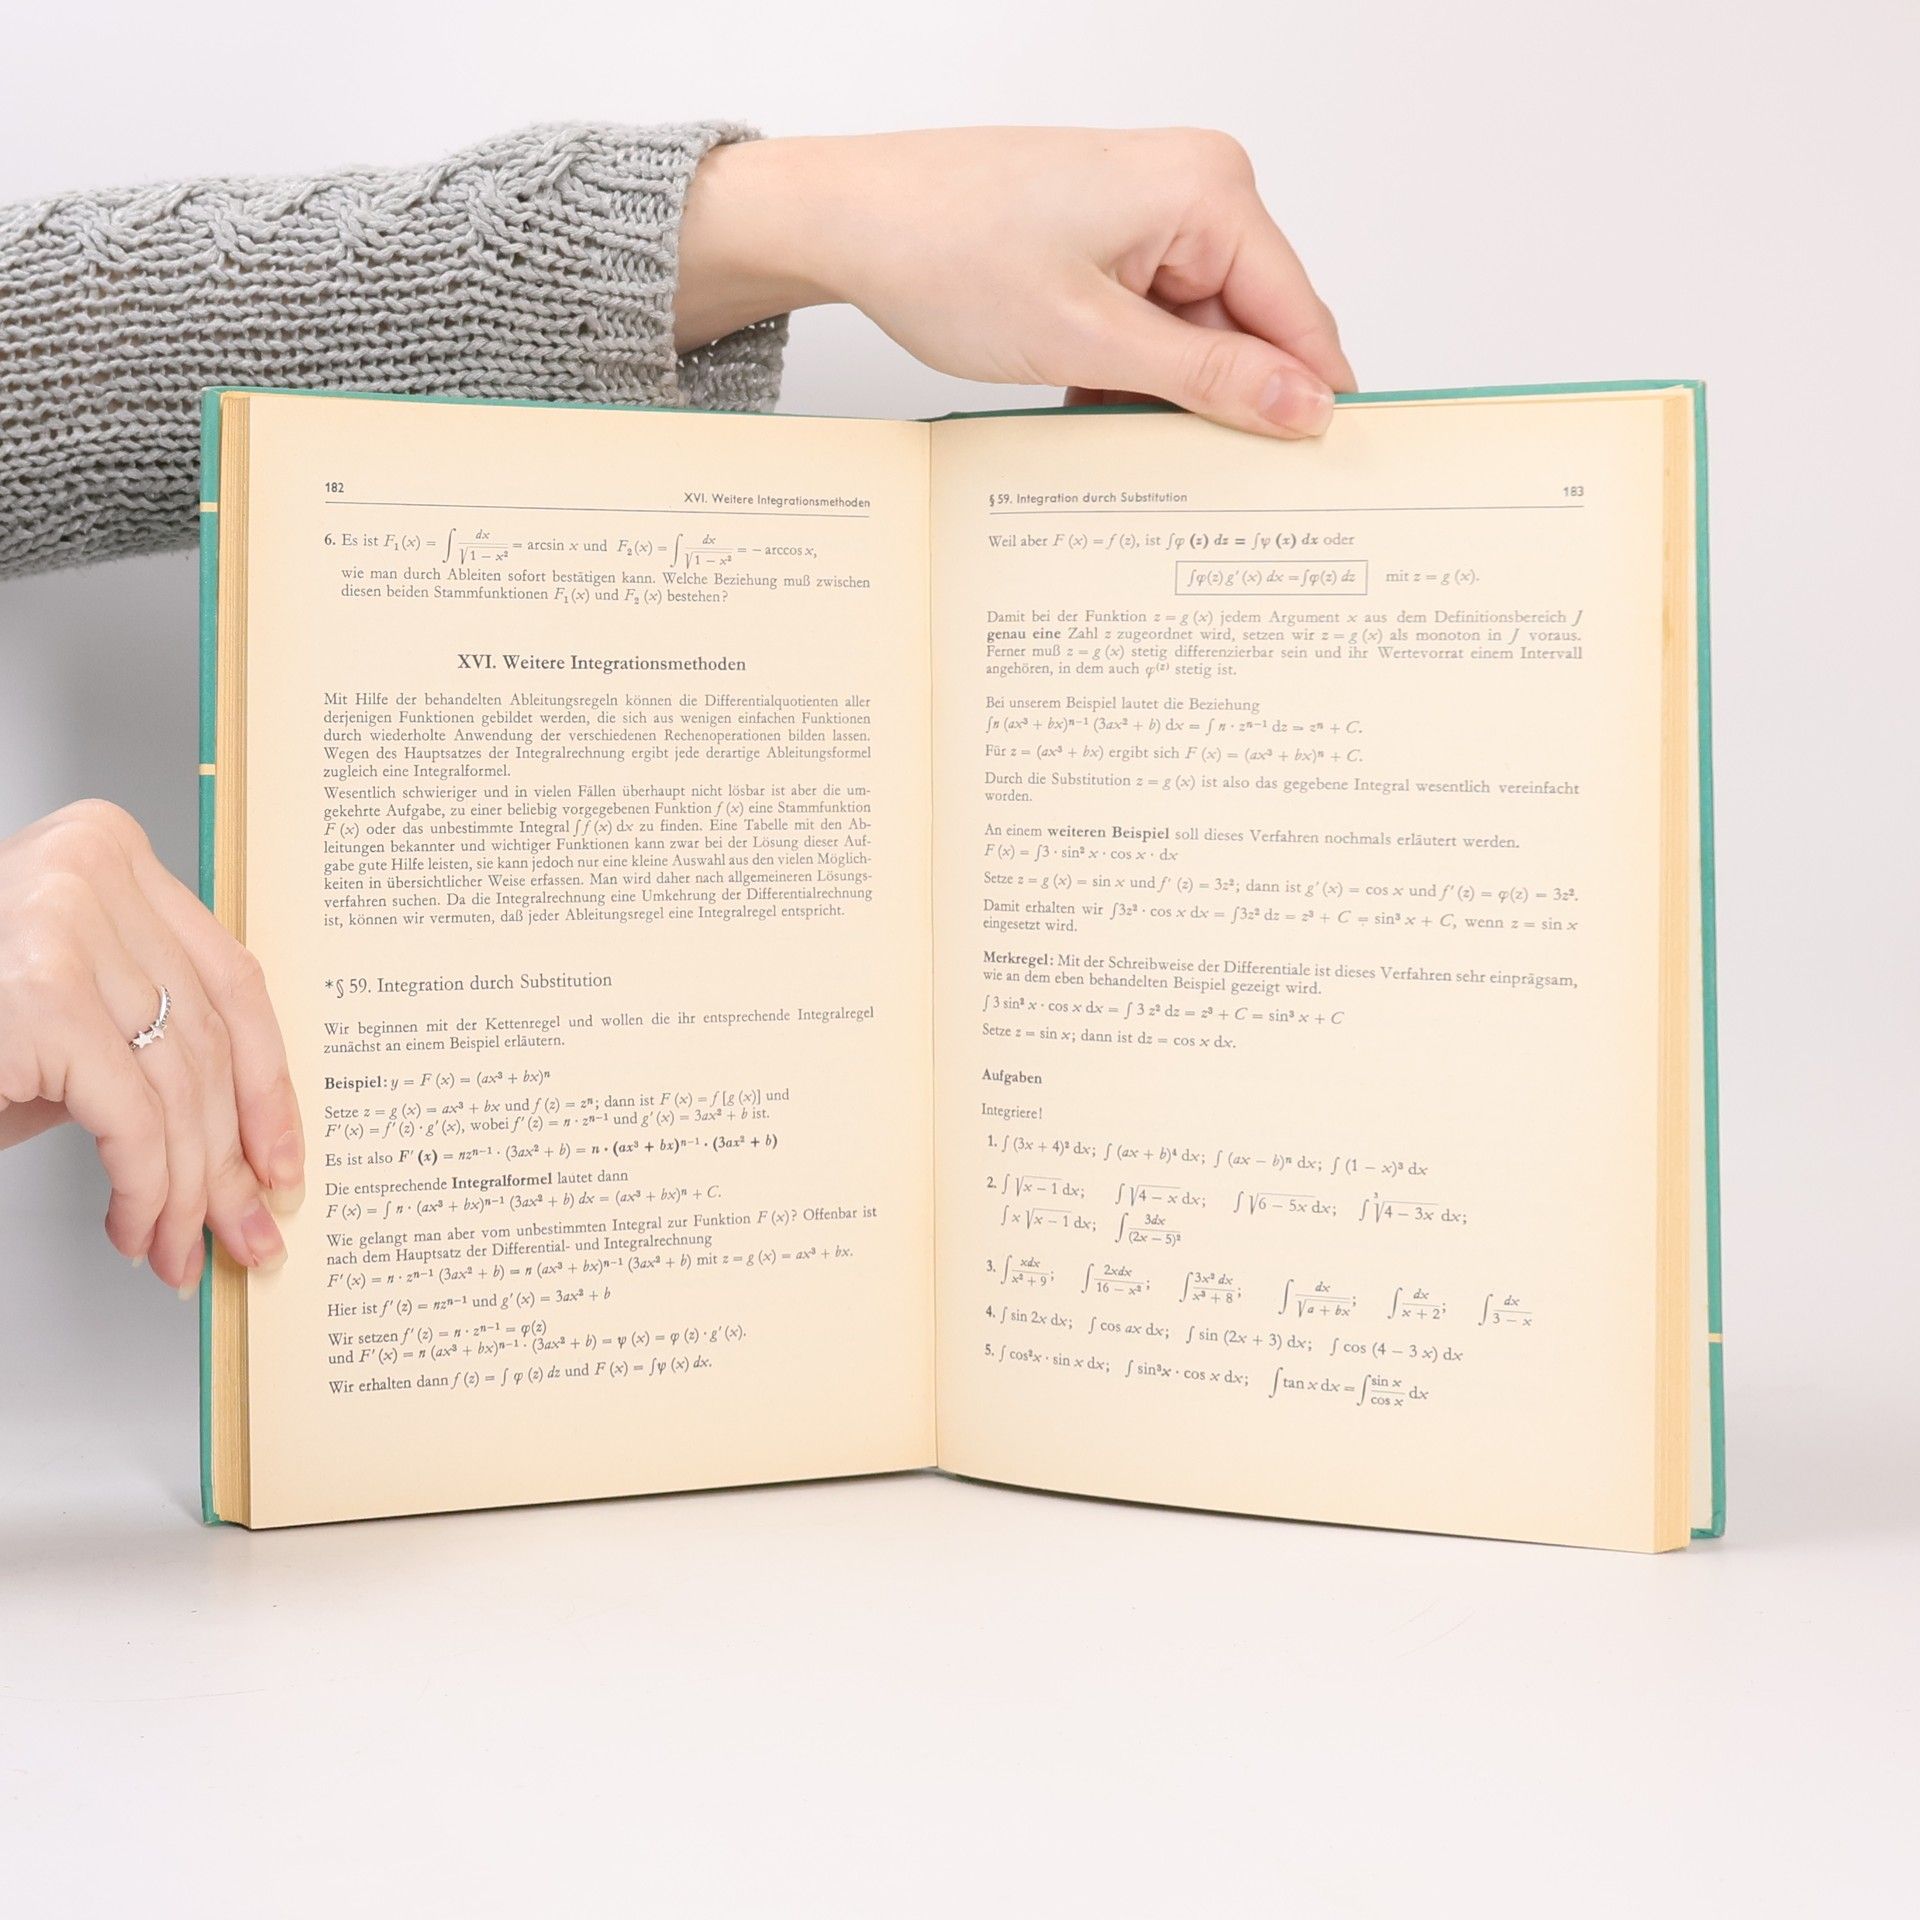 182
XVI. Weitere Integrationsmethoden
6. Es ist F₁(x) = ∫ dx/√(1 − x²) = arcsin x und F₂(x) = ∫ dx/√(1 − x²) = − arccos x,
wie man durch Ableiten sofort bestätigen kann. Welche Beziehung muß zwischen
diesen beiden Stammfunktionen F₁(x) und F₂(x) bestehen?
XVI. Weitere Integrationsmethoden
Mit Hilfe der behandelten Ableitungsregeln können die Differentialquotienten aller
derjenigen Funktionen gebildet werden, die sich aus wenigen einfachen Funktionen
durch wiederholte Anwendung der verschiedenen Rechenoperationen bilden lassen.
Wegen des Hauptsatzes der Integralrechnung ergibt jede derartige Ableitungsformel
zugleich eine Integralformel.
Wesentlich schwieriger und in vielen Fällen überhaupt nicht lösbar ist aber die um-
gekehrte Aufgabe, zu einer beliebig vorgegebenen Funktion f (x) eine Stammfunktion
F (x) oder das unbestimmte Integral ∫f (x) dx zu finden. Eine Tabelle mit den Ab-
leitungen bekannter und wichtiger Funktionen kann zwar bei der Lösung dieser Auf-
gabe gute Hilfe leisten, sie kann jedoch nur eine kleine Auswahl aus den vielen Möglich-
keiten in übersichtlicher Weise erfassen. Man wird daher nach allgemeineren Lösungs-
verfahren suchen. Da die Integralrechnung eine Umkehrung der Differentialrechnung
ist, können wir vermuten, daß jeder Ableitungsregel eine Integralregel entspricht.
*§ 59. Integration durch Substitution
Wir beginnen mit der Kettenregel und wollen die ihr entsprechende Integralregel
zunächst an einem Beispiel erläutern.
Beispiel: y = F (x) = (ax³ + bx)ⁿ
Setze z = g (x) = ax³ + bx und f (z) = zⁿ; dann ist F (x) = f [g (x)] und
F′ (x) = f′ (z) · g′ (x), wobei f′ (z) = n · zⁿ⁻¹ und g′ (x) = 3ax² + b ist.
Es ist also F′ (x) = nzⁿ⁻¹ · (3ax² + b) = n · (ax³ + bx)ⁿ⁻¹ · (3ax² + b)
Die entsprechende Integralformel lautet dann
F (x) = ∫ n · (ax³ + bx)ⁿ⁻¹ (3ax² + b) dx = (ax³ + bx)ⁿ + C.
Wie gelangt man aber vom unbestimmten Integral zur Funktion F (x)? Offenbar ist
nach dem Hauptsatz der Differential- und Integralrechnung
F′ (x) = n · zⁿ⁻¹ (3ax² + b) = n (ax³ + bx)ⁿ⁻¹ (3ax² + b) mit z = g (x) = ax³ + bx.
Hier ist f′ (z) = nzⁿ⁻¹ und g′ (x) = 3ax² + b
Wir setzen f′ (z) = n · zⁿ⁻¹ = φ(z)
und F′ (x) = n (ax³ + bx)ⁿ⁻¹ · (3ax² + b) = ψ (x) = φ (z) · g′ (x).
Wir erhalten dann f (z) = ∫ φ (z) dz und F (x) = ∫ψ (x) dx.
§ 59. Integration durch Substitution
183
Weil aber F (x) = f (z), ist ∫φ (z) dz = ∫ψ (x) dx oder
∫φ(z) g′ (x) dx = ∫φ(z) dz mit z = g (x).
Damit bei der Funktion z = g (x) jedem Argument x aus dem Definitionsbereich J
genau eine Zahl z zugeordnet wird, setzen wir z = g (x) als monoton in J voraus.
Ferner muß z = g (x) stetig differenzierbar sein und ihr Wertevorrat einem Intervall
angehören, in dem auch φ⁽ᶻ⁾ stetig ist.
Bei unserem Beispiel lautet die Beziehung
∫n (ax³ + bx)ⁿ⁻¹ (3ax² + b) dx = ∫ n · zⁿ⁻¹ dz = zⁿ + C.
Für z = (ax³ + bx) ergibt sich F (x) = (ax³ + bx)ⁿ + C.
Durch die Substitution z = g (x) ist also das gegebene Integral wesentlich vereinfacht
worden.
An einem weiteren Beispiel soll dieses Verfahren nochmals erläutert werden.
F (x) = ∫3 · sin² x · cos x · dx
Setze z = g (x) = sin x und f′ (z) = 3z²; dann ist g′ (x) = cos x und f′ (z) = φ(z) = 3z².
Damit erhalten wir ∫3z² · cos x dx = ∫3z² dz = z³ + C = sin³ x + C, wenn z = sin x
eingesetzt wird.
Merkregel: Mit der Schreibweise der Differentiale ist dieses Verfahren sehr einprägsam,
wie an dem eben behandelten Beispiel gezeigt wird.
∫ 3 sin² x · cos x dx = ∫ 3 z² dz = z³ + C = sin³ x + C
Setze z = sin x; dann ist dz = cos x dx.
Aufgaben
Integriere!
1. ∫ (3x + 4)² dx; ∫ (ax + b)⁴ dx; ∫ (ax − b)ⁿ dx; ∫ (1 − x)³ dx
2. ∫ √(x − 1) dx; ∫ √(4 − x) dx; ∫ √(6 − 5x) dx; ∫ ³√(4 − 3x) dx;
∫ x √(x − 1) dx; ∫ 3dx/(2x − 5)²
3. ∫ xdx/(x² + 9); ∫ 2xdx/(16 − x²); ∫ 3x² dx/(x³ + 8); ∫ dx/√(a + bx); ∫ dx/(x + 2); ∫ dx/(3 − x)
4. ∫ sin 2x dx; ∫ cos ax dx; ∫ sin (2x + 3) dx; ∫ cos (4 − 3 x) dx
5. ∫ cos²x · sin x dx; ∫ sin³x · cos x dx; ∫ tan x dx = ∫ sin x/cos x dx